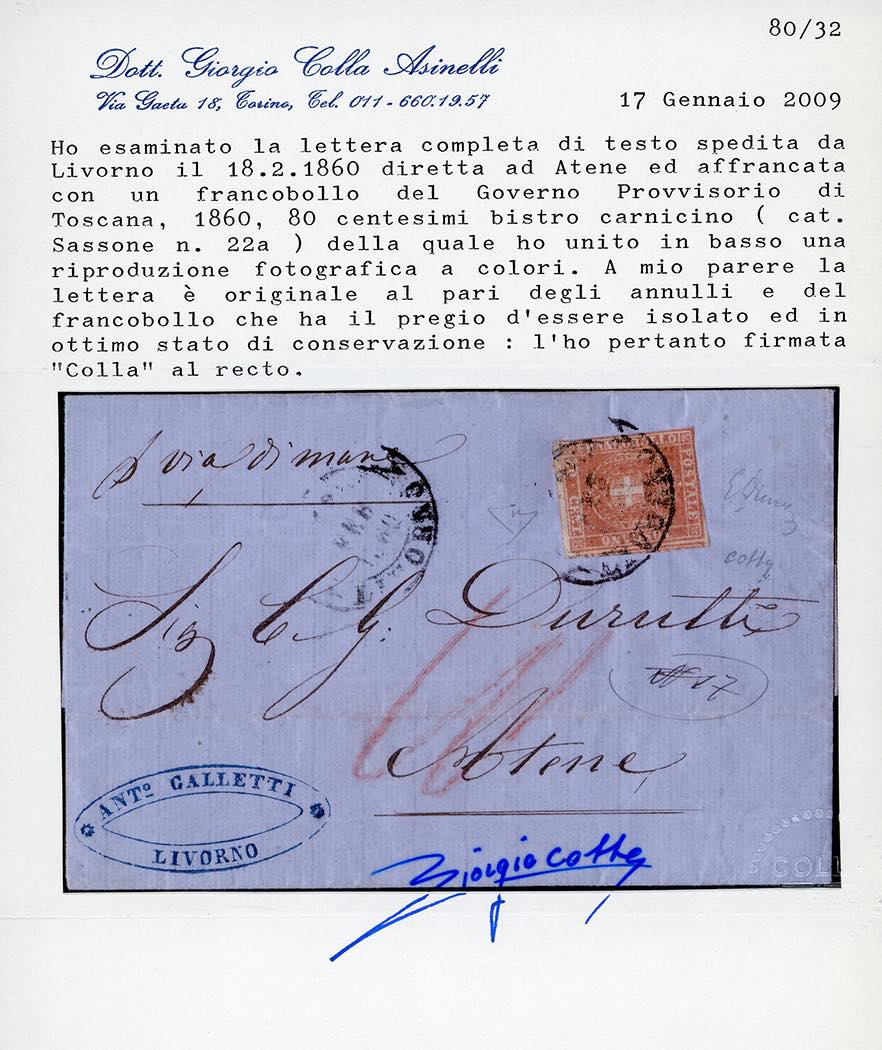 80/32
Dott. Giorgio Colla Asinelli
Via Gaeta 18, Torino, Tel. 011 - 660.19.57
17 Gennaio 2009
Ho esaminato la lettera completa di testo spedita da
Livorno il 18.2.1860 diretta ad Atene ed affrancata
con un francobollo del Governo Provvisorio di
Toscana, 1860, 80 centesimi bistro carnicino ( cat.
Sassone n. 22a ) della quale ho unito in basso una
riproduzione fotografica a colori. A mio parere la
lettera è originale al pari degli annulli e del
francobollo che ha il pregio d'essere isolato ed in
ottimo stato di conservazione : l'ho pertanto firmata
"Colla" al recto.
via di mare
LIVORNO
BOLLO
POSTALE
TOSCANO
LIVORNO
Colla
Sig C. G. Durutti
N 17
Atene
ANTº GALLETTI
LIVORNO
Giorgio Colla
COLL